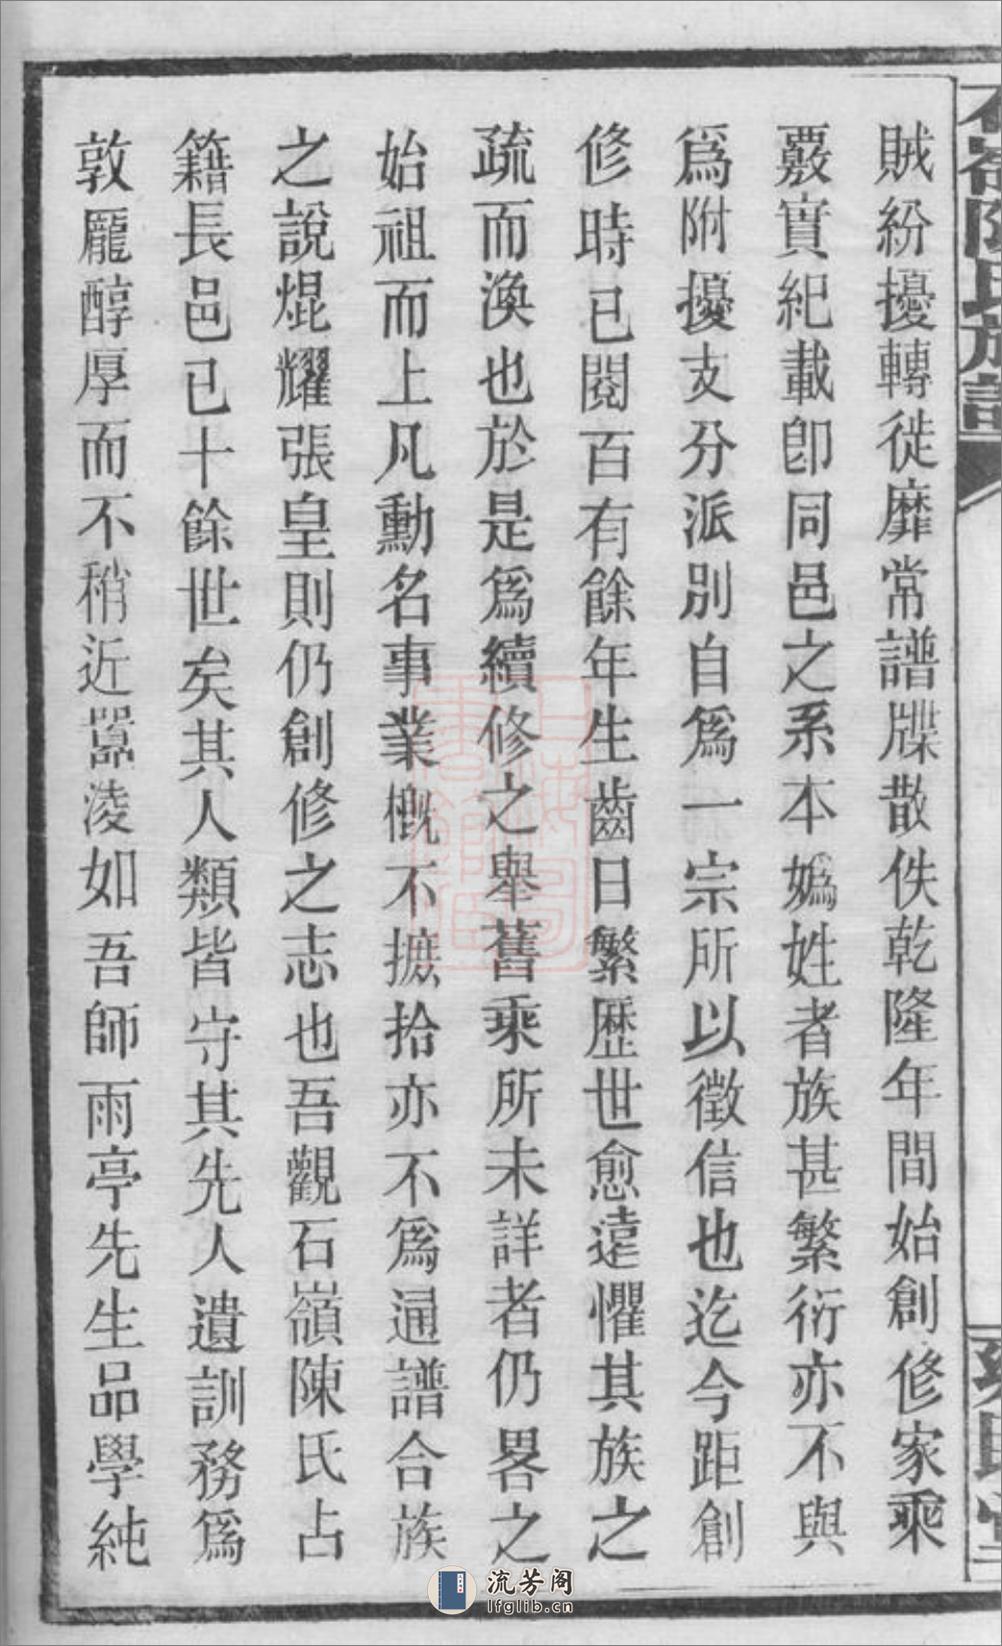 石嶺陳氏族譜
賊紛擾轉徙靡常譜牒散佚乾隆年間始創修家乘
覈實紀載卽同邑之系本嬀姓者族甚繁衍亦不與
爲附擾支分派別自爲一宗所以徵信也迄今距創
修時已閱百有餘年生齒日繁歷世愈遠懼其族之
疏而渙也於是爲續修之舉舊乘所未詳者仍畧之
始祖而上凡勳名事業槪不摭拾亦不爲通譜合族
之說焜耀張皇則仍創修之志也吾觀石嶺陳氏占
籍長邑已十餘世矣其人類皆守其先人遺訓務爲
敦龐醇厚而不稍近囂凌如吾師雨亭先生品學純
流芳阁
lfglib.cn